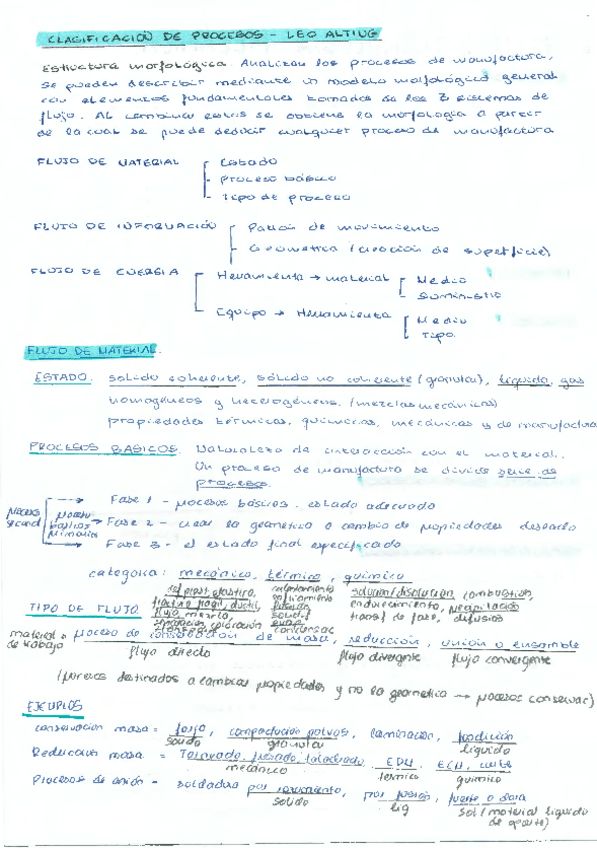 CLASIFICACIÓN DE PROCESOS - LEO ALTING
Estructura morfológica. Analizan los procesos de manufactura,
se pueden describir mediante un modelo morfológico general
con elementos fundamentales tomados de los 3 sistemas de
flujo. Al combinar estos se obtiene la morfología a partir
de la cual se puede deducir cualquier proceso de manufactura
FLUJO DE MATERIAL
Estado
Proceso básico
Tipo de proceso
FLUJO DE INFORMACIÓN
Patrón de movimiento
Geométrica (creación de superficie)
FLUJO DE ENERGIA
Herramienta → material
Medio
Suministro
Equipo → Herramienta
Medio
Tipo.
FLUJO DE MATERIAL.
ESTADO. solido coherente, sólido no coherente (granular), liquido, gas
homogéneos y heterogéneos. (mezclas mecánicas)
propiedades térmicas, químicas, mecánicas y de manufactura
PROCESOS BASICOS. Naturaleza de interacción con el material.
Un proceso de manufactura se divide serie de
procesos.
Fase 1 - procesos básicos. estado adecuado
Fase 2 - crear la geometrico o cambio de propiedades deseado
Fase 3 - el estado final especificado
proceso
básicos
primarios
categoria: mecánico, térmico, químico
def plast, elástica,
fractura frágil, ductil,
flujo, mezcla,
calentamiento
enfriamiento
fusión
solidif
evap
condensac
solución/disolución, combustion,
endurecimiento, precipitación
transf de fase, difusion
TIPO DE FLUJO
material = proceso de conservación de masa, reducción, unión o ensamble
de trabajo
flujo directo flujo divergente flujo convergente
(procesos destinados a cambiar propiedades y no la geometria → procesos conservac)
EJEMPLOS
conservacion masa = forja, compactacion polvos, laminacion, fundicion
solido granular liquido
Reduccion masa = Torneado, fresado, taladrado. EDM. ECM, corte
mecánico termico quimico
Procesos de unión - soldadura por rozamiento, por fusión, fuerte o dura
solido liq sol (material liquido
de aporte)